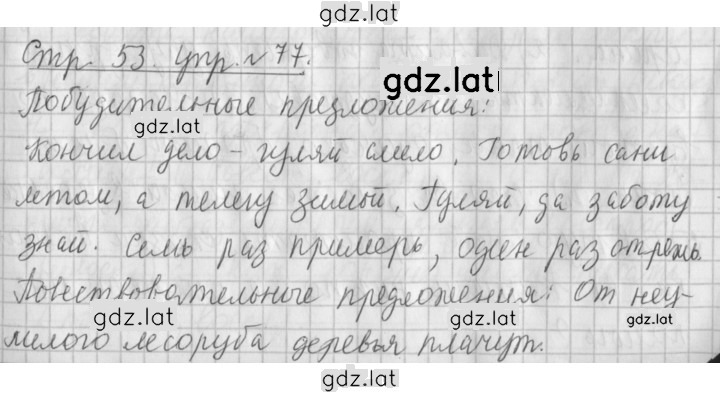 gdz.lat
Стр. 53. упр. №77.
gdz.lat
Побудительные предложения:
gdz.lat
Кончил дело - гуляй смело. Готовь сани
летом, а телегу зимой. Гуляй, да заботу
знай. Семь раз примерь, один раз отрежь.
Повествовательные предложения: От неу-
gdz.lat gdz.lat gdz.lat
милого лесоруба деревья плачут.
gdz.lat